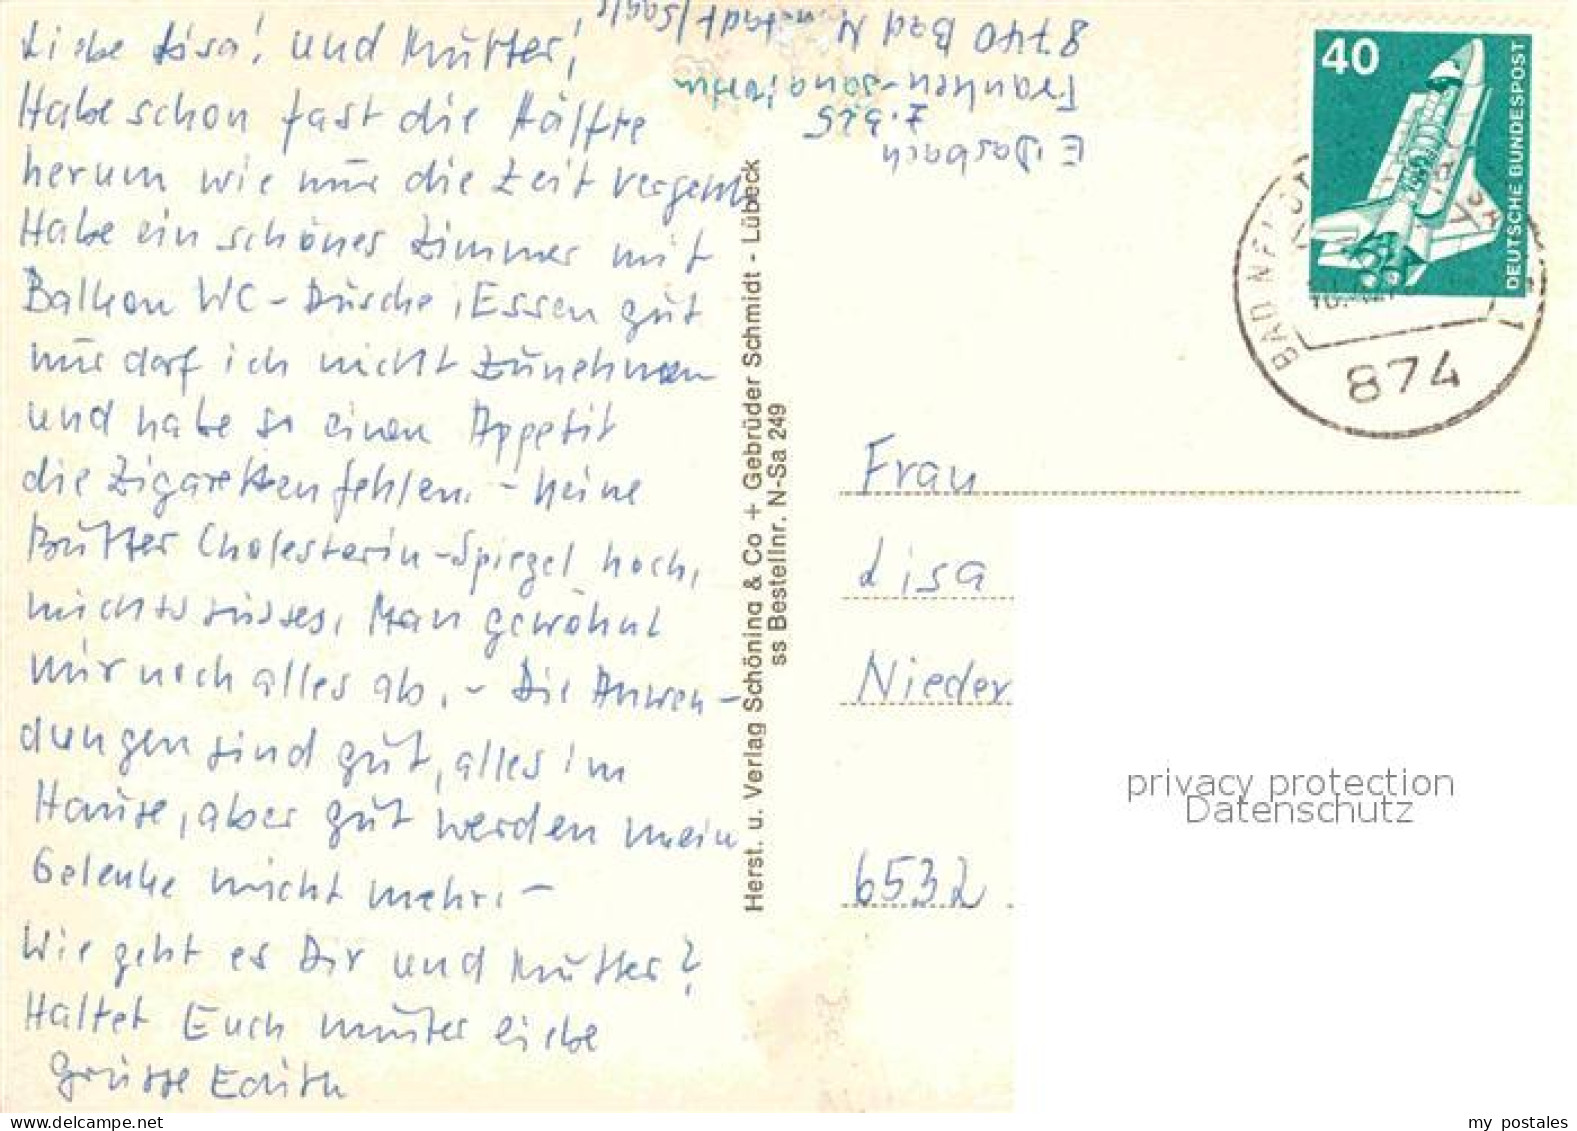 Liebe Lisa! und Mutter!
Habe schon fast die Hälfte
herum wie nur die Zeit vergeht
Habe ein schönes Zimmer mit
Balkon WC-Dusche, Essen gut
nur darf ich nicht zunehmen
und habe so einen Appetit
die Zigaretten fehlen. - Keine
Butter Cholesterin-Spiegel hoch,
nichts süsses, Man gewöhnt
mir noch alles ab. - Die Anwen-
dungen sind gut, alles im
Hause, aber gut werden mein
Gelenke nicht mehr. -
Wie geht es Dir und Mutter?
Haltet Euch munter liebe
Grüsse Edith
E. Dasbach
Z. 325
Franken-Sanatorium
8740 Bad Neustadt/Saale
Herst. u. Verlag Schöning & Co + Gebrüder Schmidt - Lübeck
ss Bestellnr. N-Sa 249
40
DEUTSCHE BUNDESPOST
BAD NEUST
1
874
Frau
Lisa
Nieder
6532
privacy protection
Datenschutz
my postales